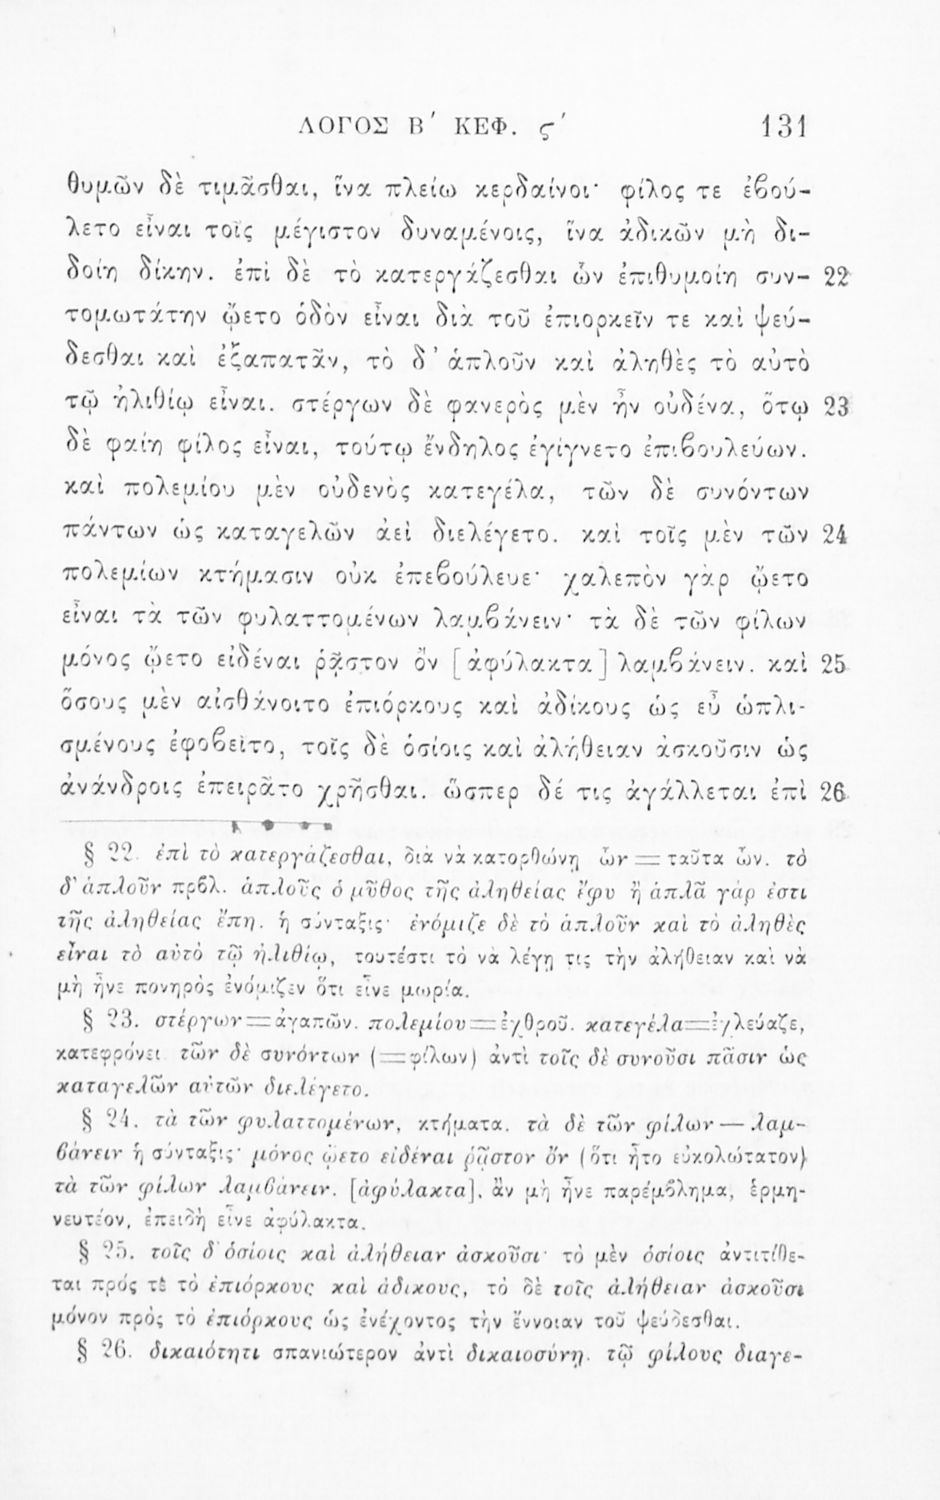 ΛΟΓΟΣ Β΄ ΚΕΦ. ϛ΄ 131
θυμῶν δὲ τιμᾶσθαι, ἵνα πλείω κερδαίνοι· φίλος τε ἐβού-
λετο εἶναι τοῖς μέγιστον δυναμένοις, ἵνα ἀδικῶν μὴ δι-
δοίη δίκην. ἐπὶ δὲ τὸ κατεργάζεσθαι ὧν ἐπιθυμοίη συν- 22
τομωτάτην ᾤετο ὁδὸν εἶναι διὰ τοῦ ἐπιορκεῖν τε καὶ ψεύ-
δεσθαι καὶ ἐξαπατᾶν, τὸ δ' ἁπλοῦν καὶ ἀληθὲς τὸ αὐτὸ
τῷ ἠλιθίῳ εἶναι. στέργων δὲ φανερὸς μὲν ἦν οὐδένα, ὅτῳ 23
δὲ φαίη φίλος εἶναι, τούτῳ ἔνδηλος ἐγίγνετο ἐπιβουλεύων.
καὶ πολεμίου μὲν οὐδενὸς κατεγέλα, τῶν δὲ συνόντων
πάντων ὡς καταγελῶν ἀεὶ διελέγετο. καὶ τοῖς μὲν τῶν 24
πολεμίων κτήμασιν οὐκ ἐπεβούλευε· χαλεπὸν γὰρ ᾤετο
εἶναι τὰ τῶν φυλαττομένων λαμβάνειν· τὰ δὲ τῶν φίλων
μόνος ᾤετο εἰδέναι ῥᾷστον ὂν [ἀφύλακτα] λαμβάνειν. καὶ 25
ὅσους μὲν αἰσθάνοιτο ἐπιόρκους καὶ ἀδίκους ὡς εὖ ὡπλι-
σμένους ἐφοβεῖτο, τοῖς δὲ ὁσίοις καὶ ἀλήθειαν ἀσκοῦσιν ὡς
ἀνάνδροις ἐπειρᾶτο χρῆσθαι. ὥσπερ δέ τις ἀγάλλεται ἐπὶ 26
§ 22. ἐπὶ τὸ κατεργάζεσθαι, διὰ νὰ κατορθώνῃ ὧν = ταῦτα ὧν. τὸ
δ' ἁπλοῦν πρβλ. ἁπλοῦς ὁ μῦθος τῆς ἀληθείας ἔφυ ἢ ἁπλᾶ γάρ ἐστι
τῆς ἀληθείας ἔπη. ἡ σύνταξις· ἐνόμιζε δὲ τὸ ἁπλοῦν καὶ τὸ ἀληθὲς
εἶναι τὸ αὐτὸ τῷ ἠλιθίῳ, τουτέστι τὸ νὰ λέγῃ τις τὴν ἀλήθειαν καὶ νὰ
μὴ ἦνε πονηρὸς ἐνόμιζεν ὅτι εἶνε μωρία.
§ 23. στέργων=ἀγαπῶν. πολεμίου=ἐχθροῦ. κατεγέλα=ἐχλεύαζε,
κατεφρόνει τῶν δὲ συνόντων (=φίλων) ἀντὶ τοῖς δὲ συνοῦσι πᾶσιν ὡς
καταγελῶν αὐτῶν διελέγετο.
§ 24. τὰ τῶν φυλαττομένων, κτήματα. τὰ δὲ τῶν φίλων — λαμ-
βάνειν ἡ σύνταξις· μόνος ᾤετο εἰδέναι ῥᾷστον ὂν (ὅτι ἦτο εὐκολώτατον)
τὰ τῶν φίλων λαμβάνειν. [ἀφύλακτα], ἂν μὴ ἦνε παρέμβλημα, ἑρμη-
νευτέον, ἐπειδὴ εἶνε ἀφύλακτα.
§ 25. τοῖς δ' ὁσίοις καὶ ἀλήθειαν ἀσκοῦσι· τὸ μὲν ὁσίοις ἀντιτίθε-
ται πρός τε τὸ ἐπιόρκους καὶ ἀδίκους, τὸ δὲ τοῖς ἀλήθειαν ἀσκοῦσι
μόνον πρὸς τὸ ἐπιόρκους ὡς ἐνέχοντος τὴν ἔννοιαν τοῦ ψεύδεσθαι.
§ 26. δικαιότητι σπανιώτερον ἀντὶ δικαιοσύνῃ. τῷ φίλους διαγε-